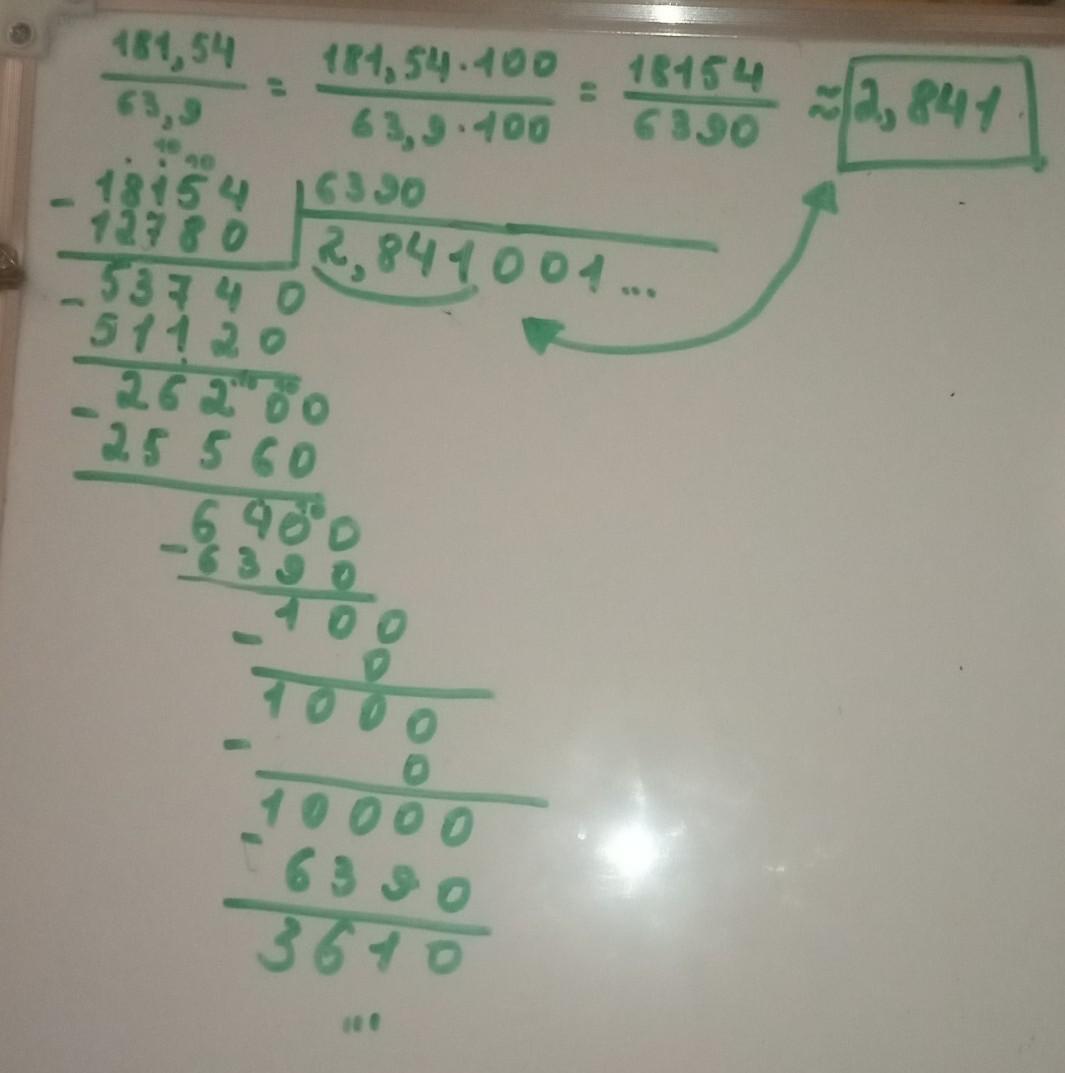 181,54 / 63,9 = 181,54·100 / 63,9·100 = 18154 / 6390 ≈ 2,841
10 10
- 18154 | 6390
12780 | 2,841001...
- 53740
51120
10 10
- 26200
25560
10
6400
- 6390
- 100
0
1000
- 0
10000
- 6390
3610
...